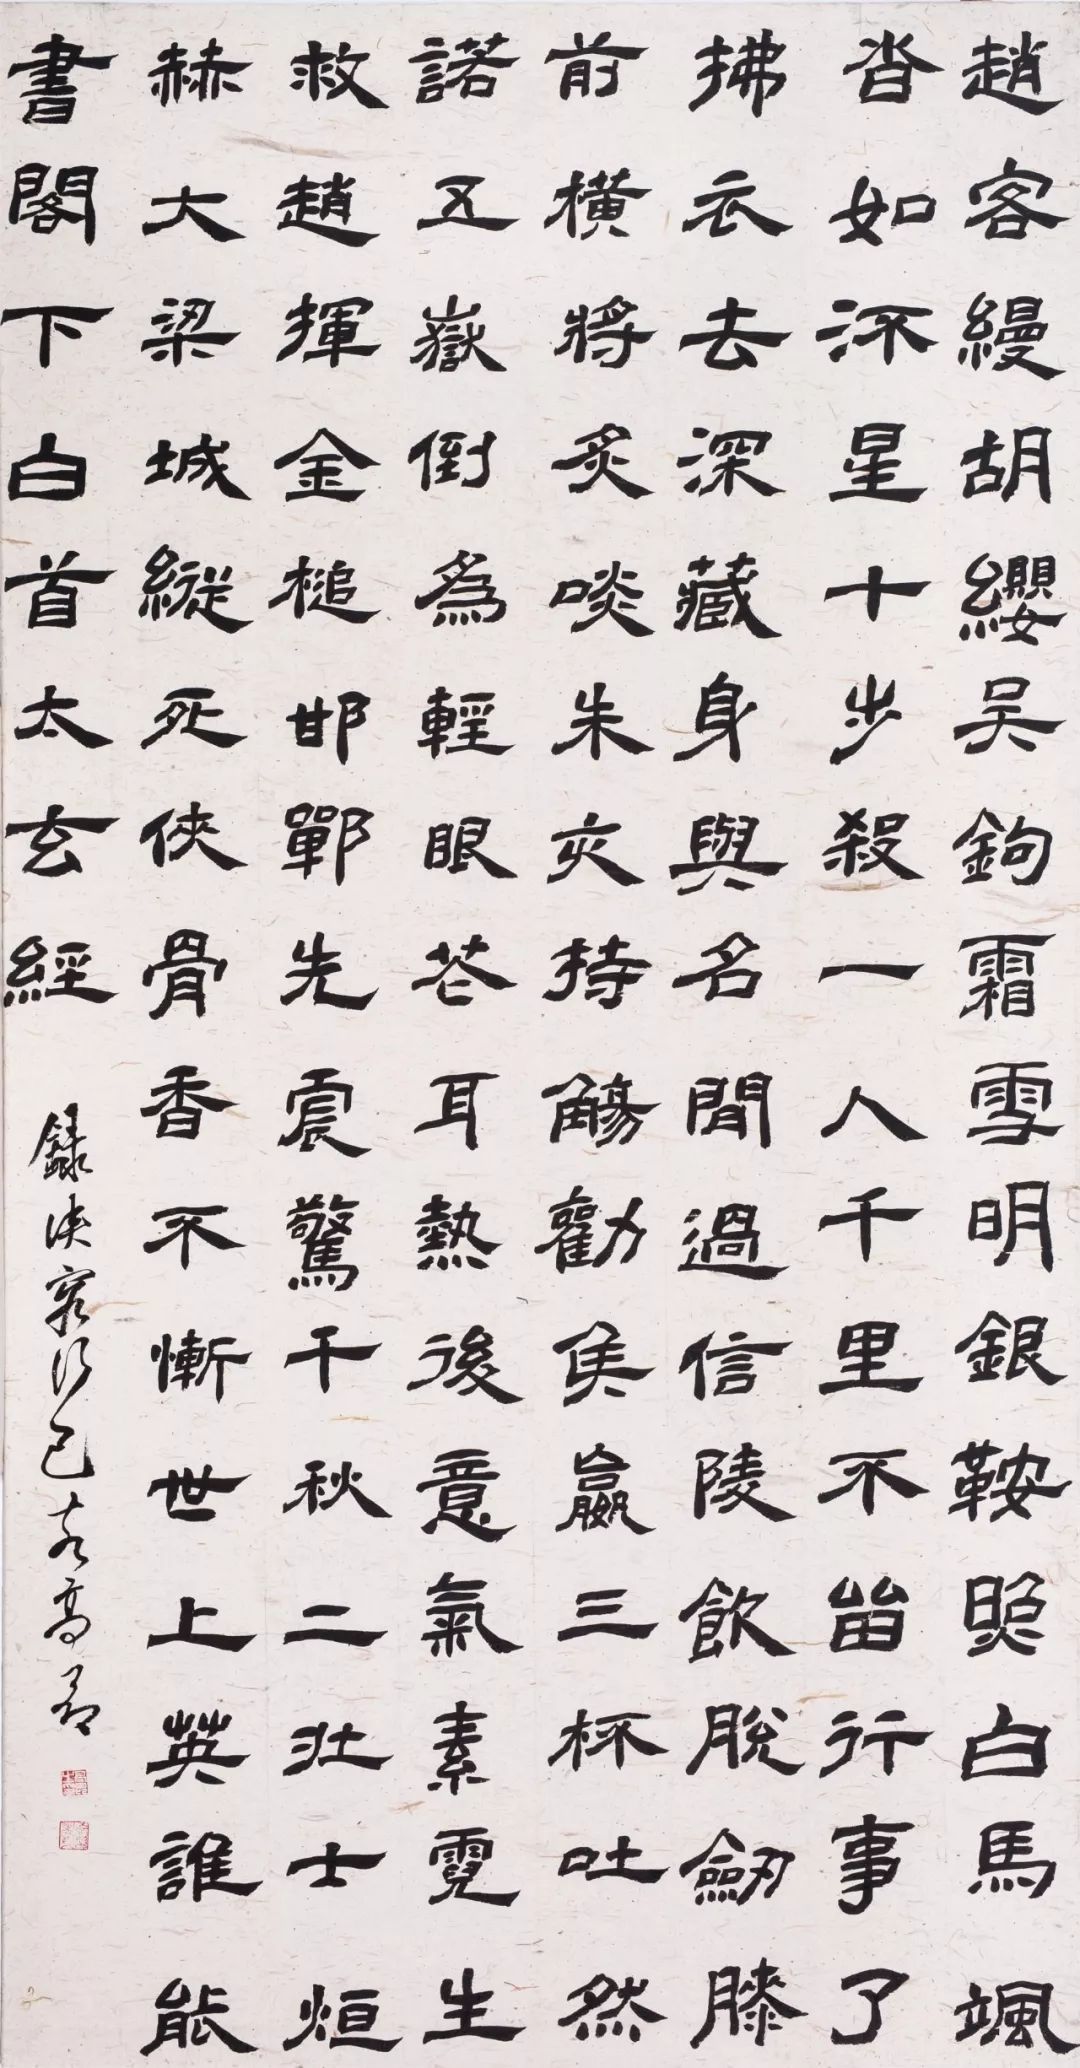 趙客縵胡纓吴鉤霜雪明銀鞍照白馬颯
沓如流星十步殺一人千里不留行事了
拂衣去深藏身與名閒過信陵飲脫劒膝
前橫將炙啖朱亥持觴勸侯嬴三杯吐然
諾五嶽倒為輕眼花耳熱後意氣素霓生
救趙揮金槌邯鄲先震驚千秋二壯士烜
赫大梁城縱死俠骨香不慚世上英誰能
書閣下白首太玄經
錄俠客行己亥高